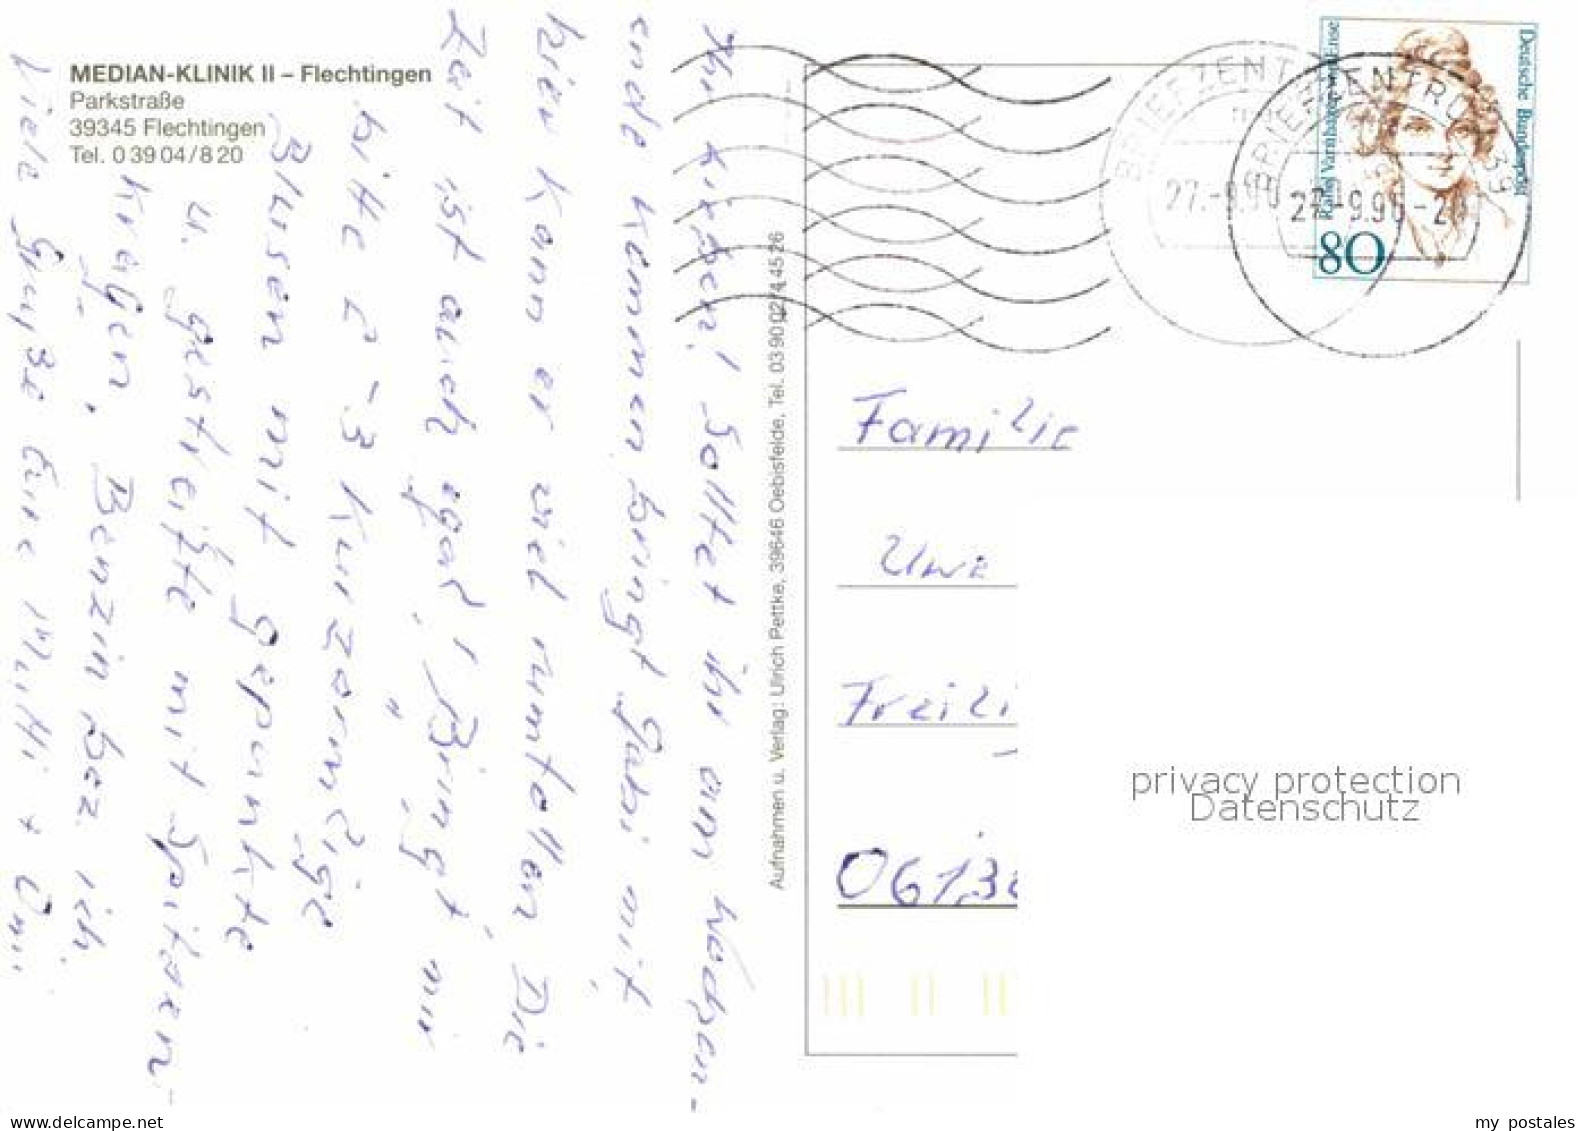 MEDIAN-KLINIK II – Flechtingen
Parkstraße
39345 Flechtingen
Tel. 0 39 04 / 8 20
Ihr Lieben! Solltet ihr am Wochen-
ende kommen bringt Gabi mit
hier kann er viel rumtollen, Die
Zeit ist auch egal! Bringt mir
bitte 2-3 kurzärmlige
Blusen mit gepunkte
u. gestreifte mit Spitzen-
kragen, Benzin bez. ich.
Viele Grüße Eure Mutti + Omi
Aufnahmen u. Verlag: Ulrich Pettke, 39646 Oebisfelde, Tel. 03 90 02 / 4 45 26
Deutsche Bundespost
Rahel Varnhagen von Ense
80
BRIEFZENT
27.-9.9
BRIEFZENTRUM 39
27.-9.96-2
Familie
Uwe
Freili
0613
privacy protection
Datenschutz
www.delcampe.net
my_postales